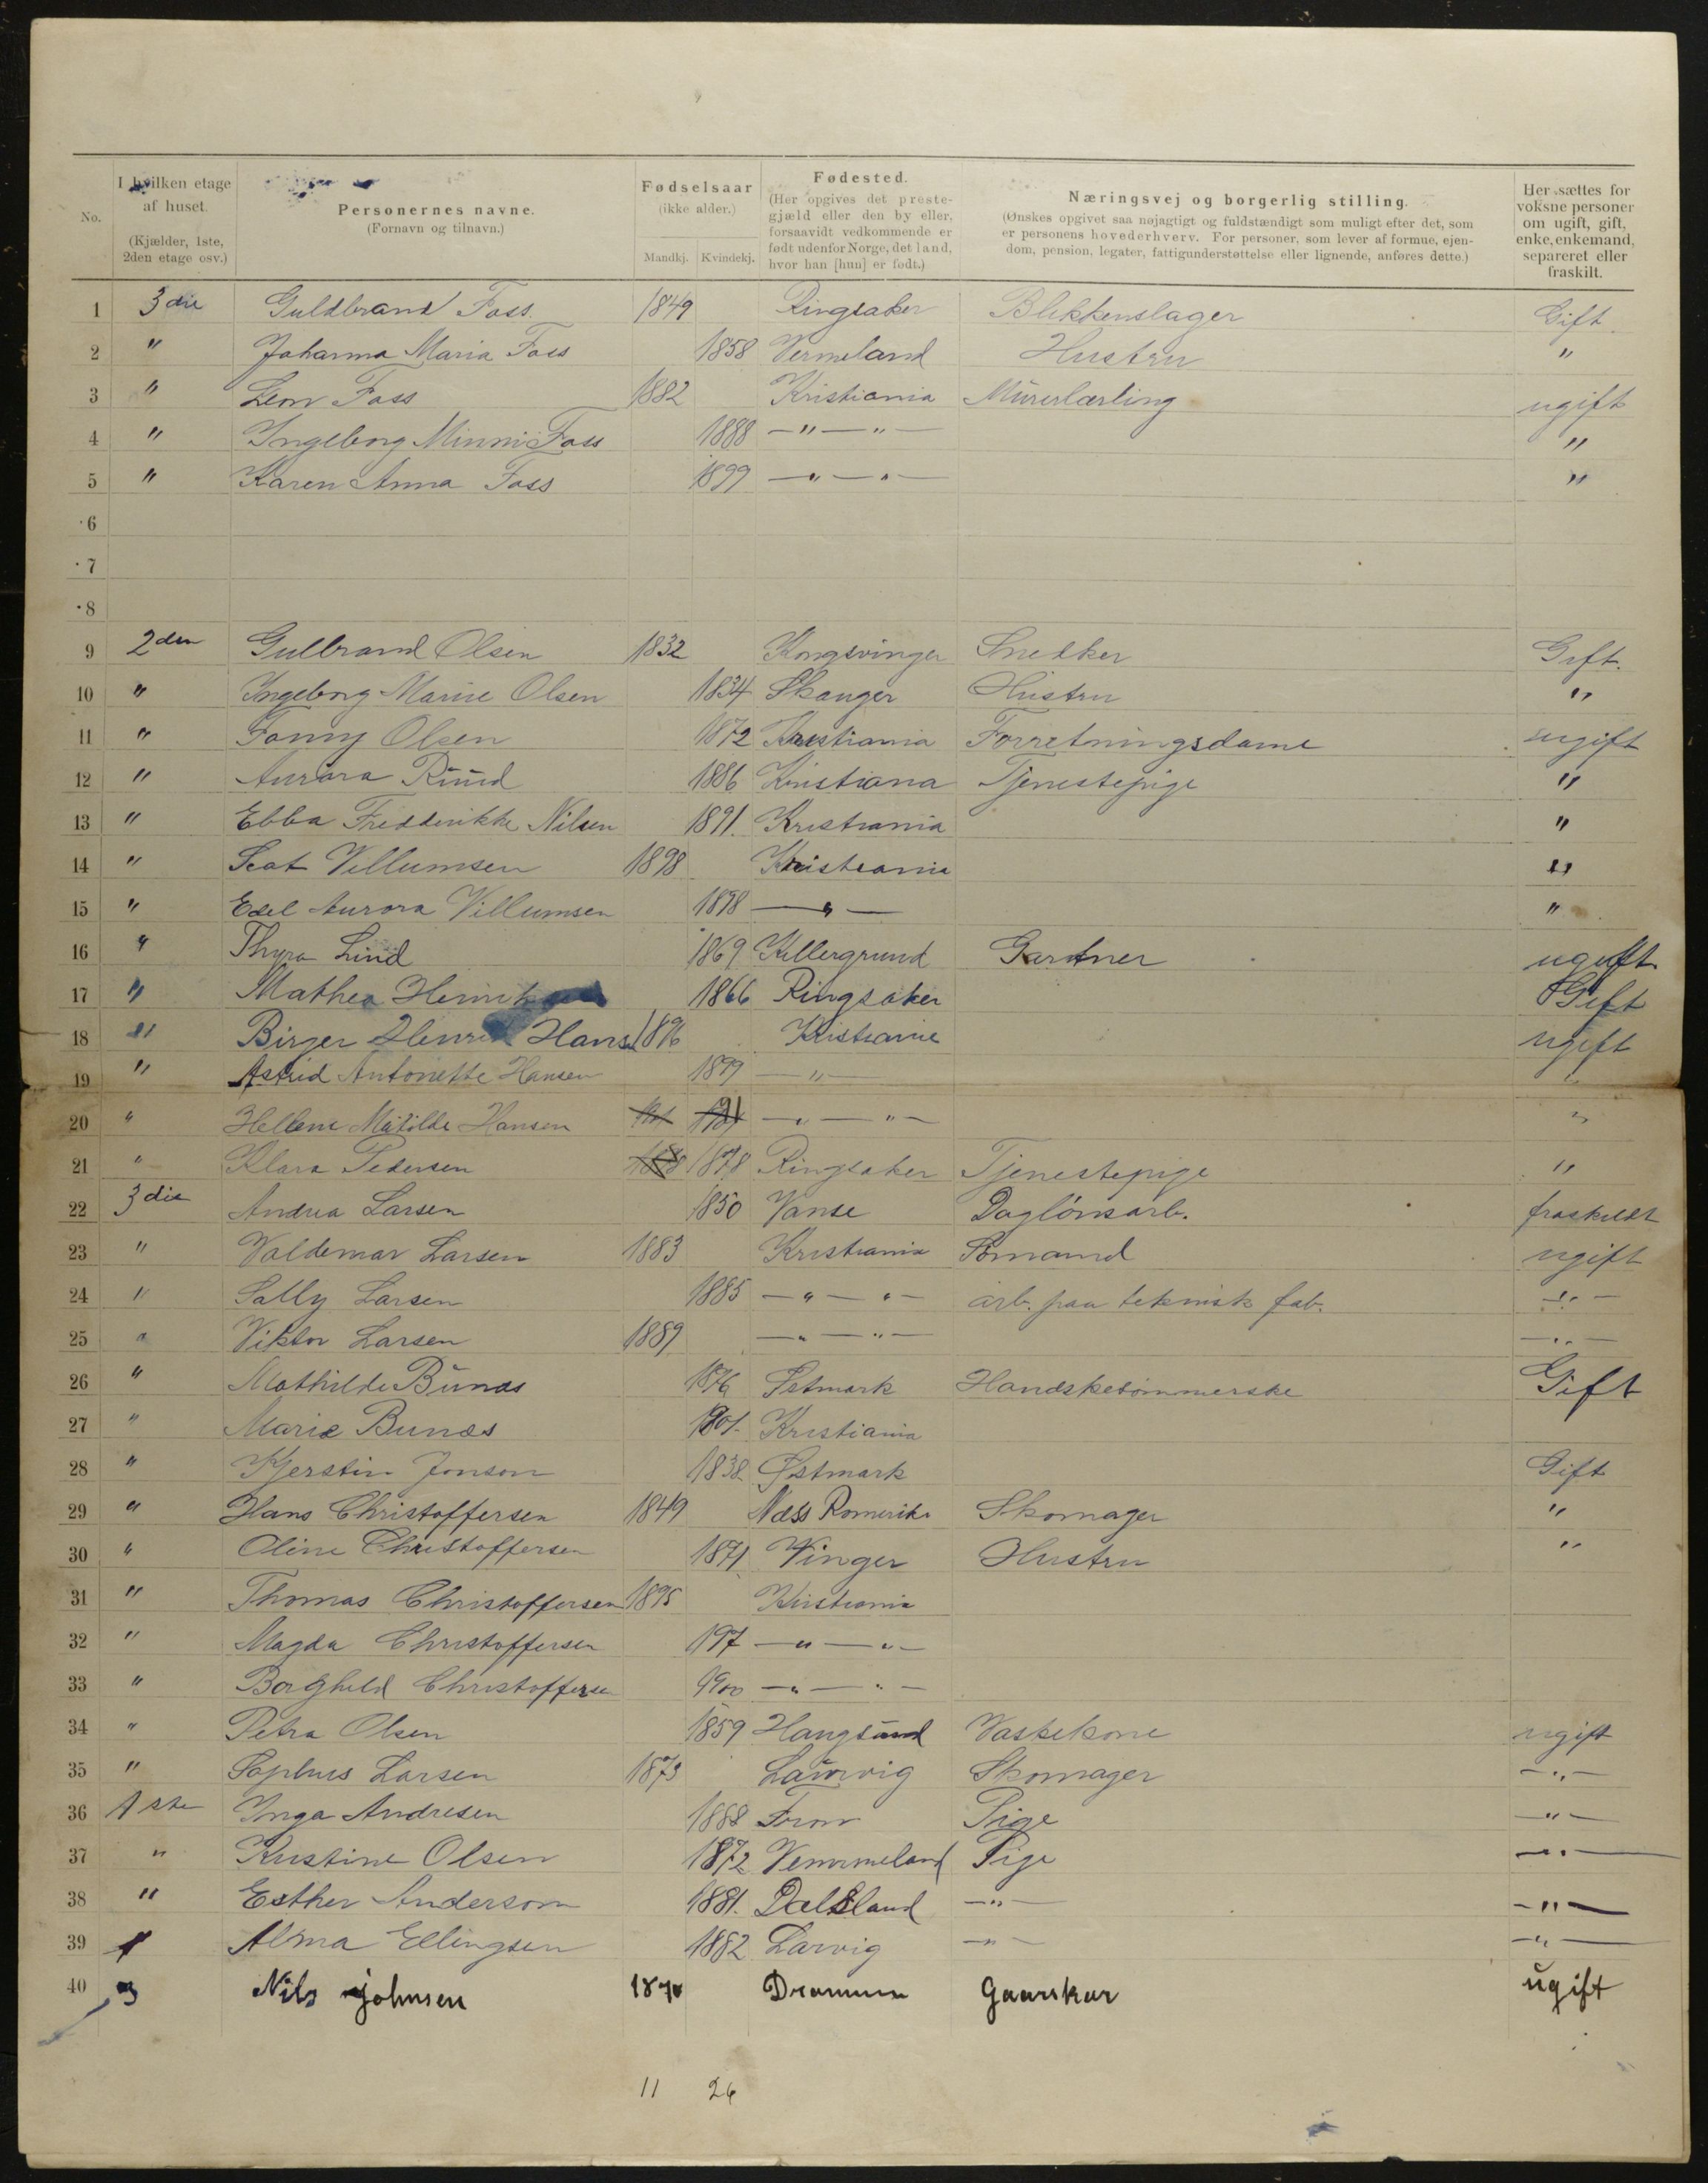 No. I hvilken etage af huset. (Kjælder, 1ste, 2den etage osv.) Personernes navne. (Fornavn og tilnavn.) Fødselsaar (ikke alder.) Mandkj. Kvindekj. Fødested. (Her opgives det prestegjæld eller den by eller, forsaavidt vedkommende er født udenfor Norge, det land, hvor han [hun] er født.) Næringsvej og borgerlig stilling. (Ønskes opgivet saa nøjagtigt og fuldstændigt som muligt efter det, som er personens hovederhverv. For personer, som lever af formue, ejendom, pension, legater, fattigunderstøttelse eller lignende, anføres dette.) Her sættes for voksne personer om ugift, gift, enke, enkemand, separeret eller fraskilt.
1 3die Guldbrand Foss 1849 Ringsaker Blikkenslager Gift
2 " Johanna Maria Foss 1858 Vermeland Hustru "
3 " Leon Foss 1882 Kristiania Murerlærling ugift
4 " Ingeborg Minni Foss 1888 —"—"— "
5 " Karen Anna Foss 1899 —"—"— "
6
7
8
9 2den Gulbrand Olsen 1832 Kongsvinger Snedker Gift.
10 " Ingeborg Marie Olsen 1834 Skauger Hustru "
11 " Fanny Olsen 1872 Kristiania Forretningsdame ugift
12 " Aurora Ruud 1886 Kristiana Tjenestepige "
13 " Ebba Fredderikke Nilsen 1891. Kristiania "
14 " Scot Villumsen 1898 Kristiania "
15 " Edel Aurora Villumsen 1898 —"— "
16 " Thyra Lind 1869 Killergrund Gartner ugift
17 " Mathea 1866 Ringsaker Gift
18 " Birger Henrik Hans 1896 Kristiania ugift
19 " Astrid Antonette Hansen 1899 —"— "
20 " Hellene Matilde Hansen —"—"— "
21 " Klara Pedersen 1878 Ringsaker Tjenestepige "
22 3die Andrea Larsen 1850 Vanse Daglönsarb. fraskildt
23 " Valdemar Larsen 1883 Kristiania Sømand ugift
24 " Sally Larsen 1885 —"—"— arb. paa teknisk fab. —"—
25 " Viktor Larsen 1889 —"—"— —"—
26 " Mathilde Bunæs 1876 Østmark Handskesömmerske Gift
27 " Marie Bunæs 1901. Kristiania
28 " Kjerstin Jonson 1838 Østmark Gift
29 " Hans Christoffersen 1849 Næss Romerike Skomager "
30 " Oline Christoffersen 1871 Vinger Hustru "
31 " Thomas Christoffersen 1895 Kristiania
32 " Magda Christoffersen 197 —"—"—
33 " Borghild Christoffersen 1900 —"—"—
34 " Petra Olsen 1859 Haugsund Vaskekone ugift
35 " Sophus Larsen 1873 Laurvig Skomager —"—
36 1ste Inga Andresen 1888 Pige —"—
37 " Kristine Olsen 1872 Vemmeland Pige —"—
38 " Esther Anderson 1881. Dalsland —"— —"—
39 Alma Ellingsen 1882 Larvig —"— —"—
40 3 Nils Johnsen 1870 Drammen Gaarskar ugift
11 26